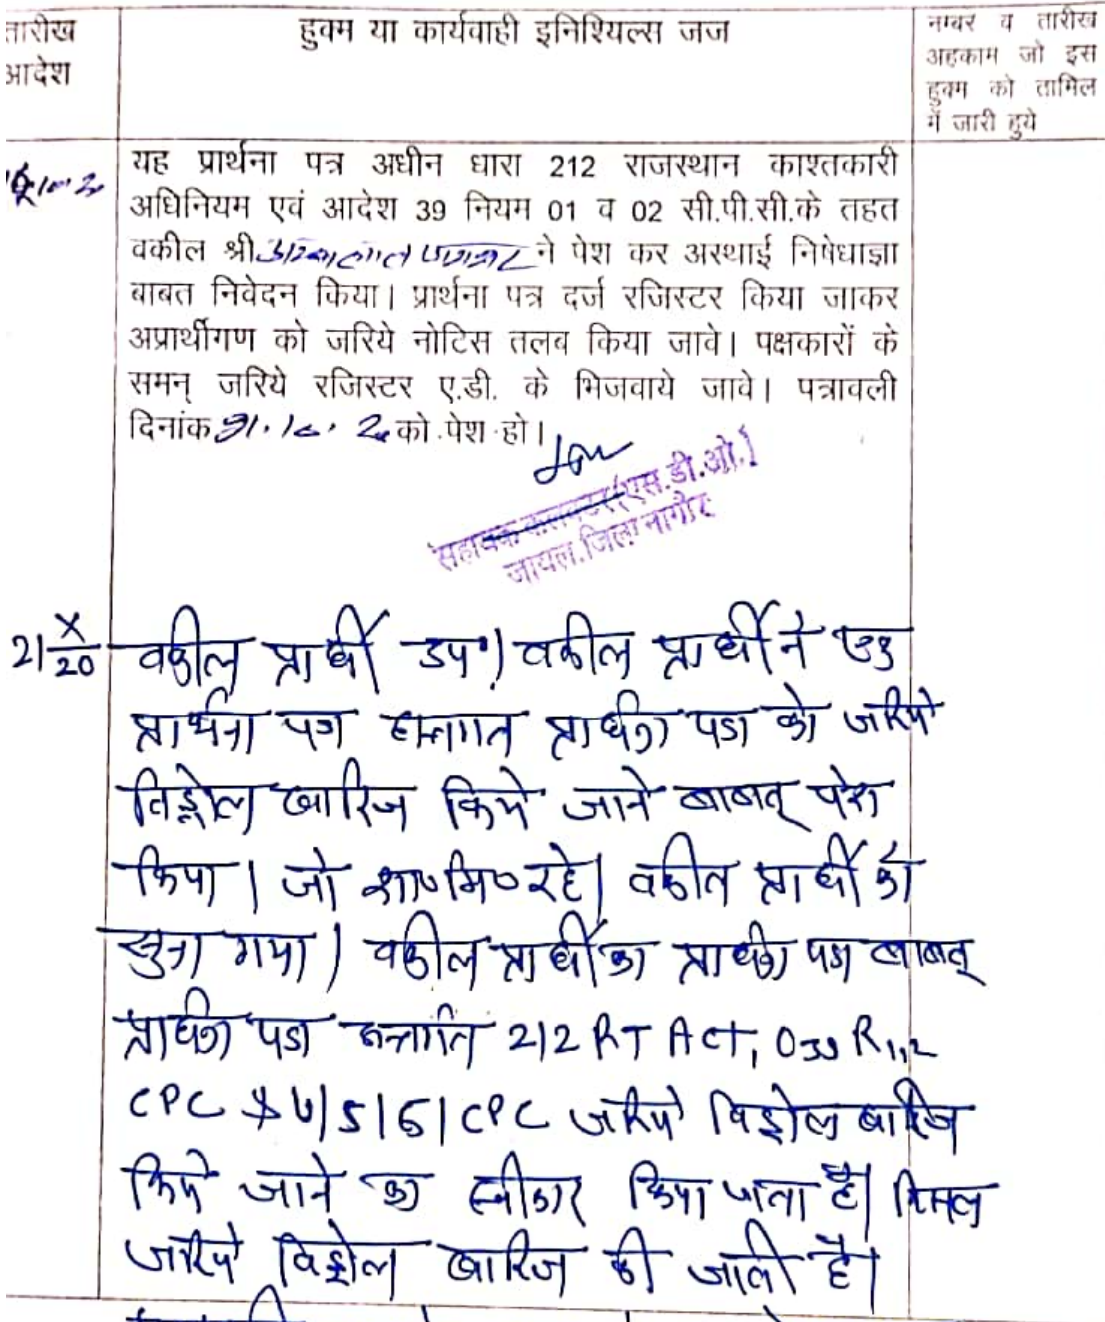 तारीख
आदेश
हुक्म या कार्यवाही इनिश्यिल्स जज
नम्बर व तारीख
अहकाम जो इस
हुक्म को तामिल
में जारी हुये
यह प्रार्थना पत्र अधीन धारा 212 राजस्थान काश्तकारी
अधिनियम एवं आदेश 39 नियम 01 व 02 सी.पी.सी.के तहत
वकील श्री ने पेश कर अस्थाई निषेधाज्ञा
बाबत निवेदन किया। प्रार्थना पत्र दर्ज रजिस्टर किया जाकर
अप्रार्थीगण को जरिये नोटिस तलब किया जावे। पक्षकारों के
समन् जरिये रजिस्टर ए.डी. के भिजवाये जावे। पत्रावली
दिनांक को पेश हो।
सहायक कलक्टर(एस.डी.ओ.)
जायल.जिला नागौर
21 X/20 वकील प्रार्थी उप०। वकील प्रार्थी ने
प्रार्थना पत्र प्रार्थना पत्र को जरिये
विड्रोल खारिज किये जाने बाबत् पेश
किया। जो शा०मि० रहे। वकील प्रार्थी को
सुना गया। वकील प्रार्थी का प्रार्थना पत्र बाबत्
प्रार्थना पत्र अन्तर्गत 212 RT Act, O39 R1,2
CPC CPC जरिये विड्रोल खारिज
किये जाने का स्वीकार किया जाता है। मिसल
जरिये विड्रोल खारिज की जाती है।